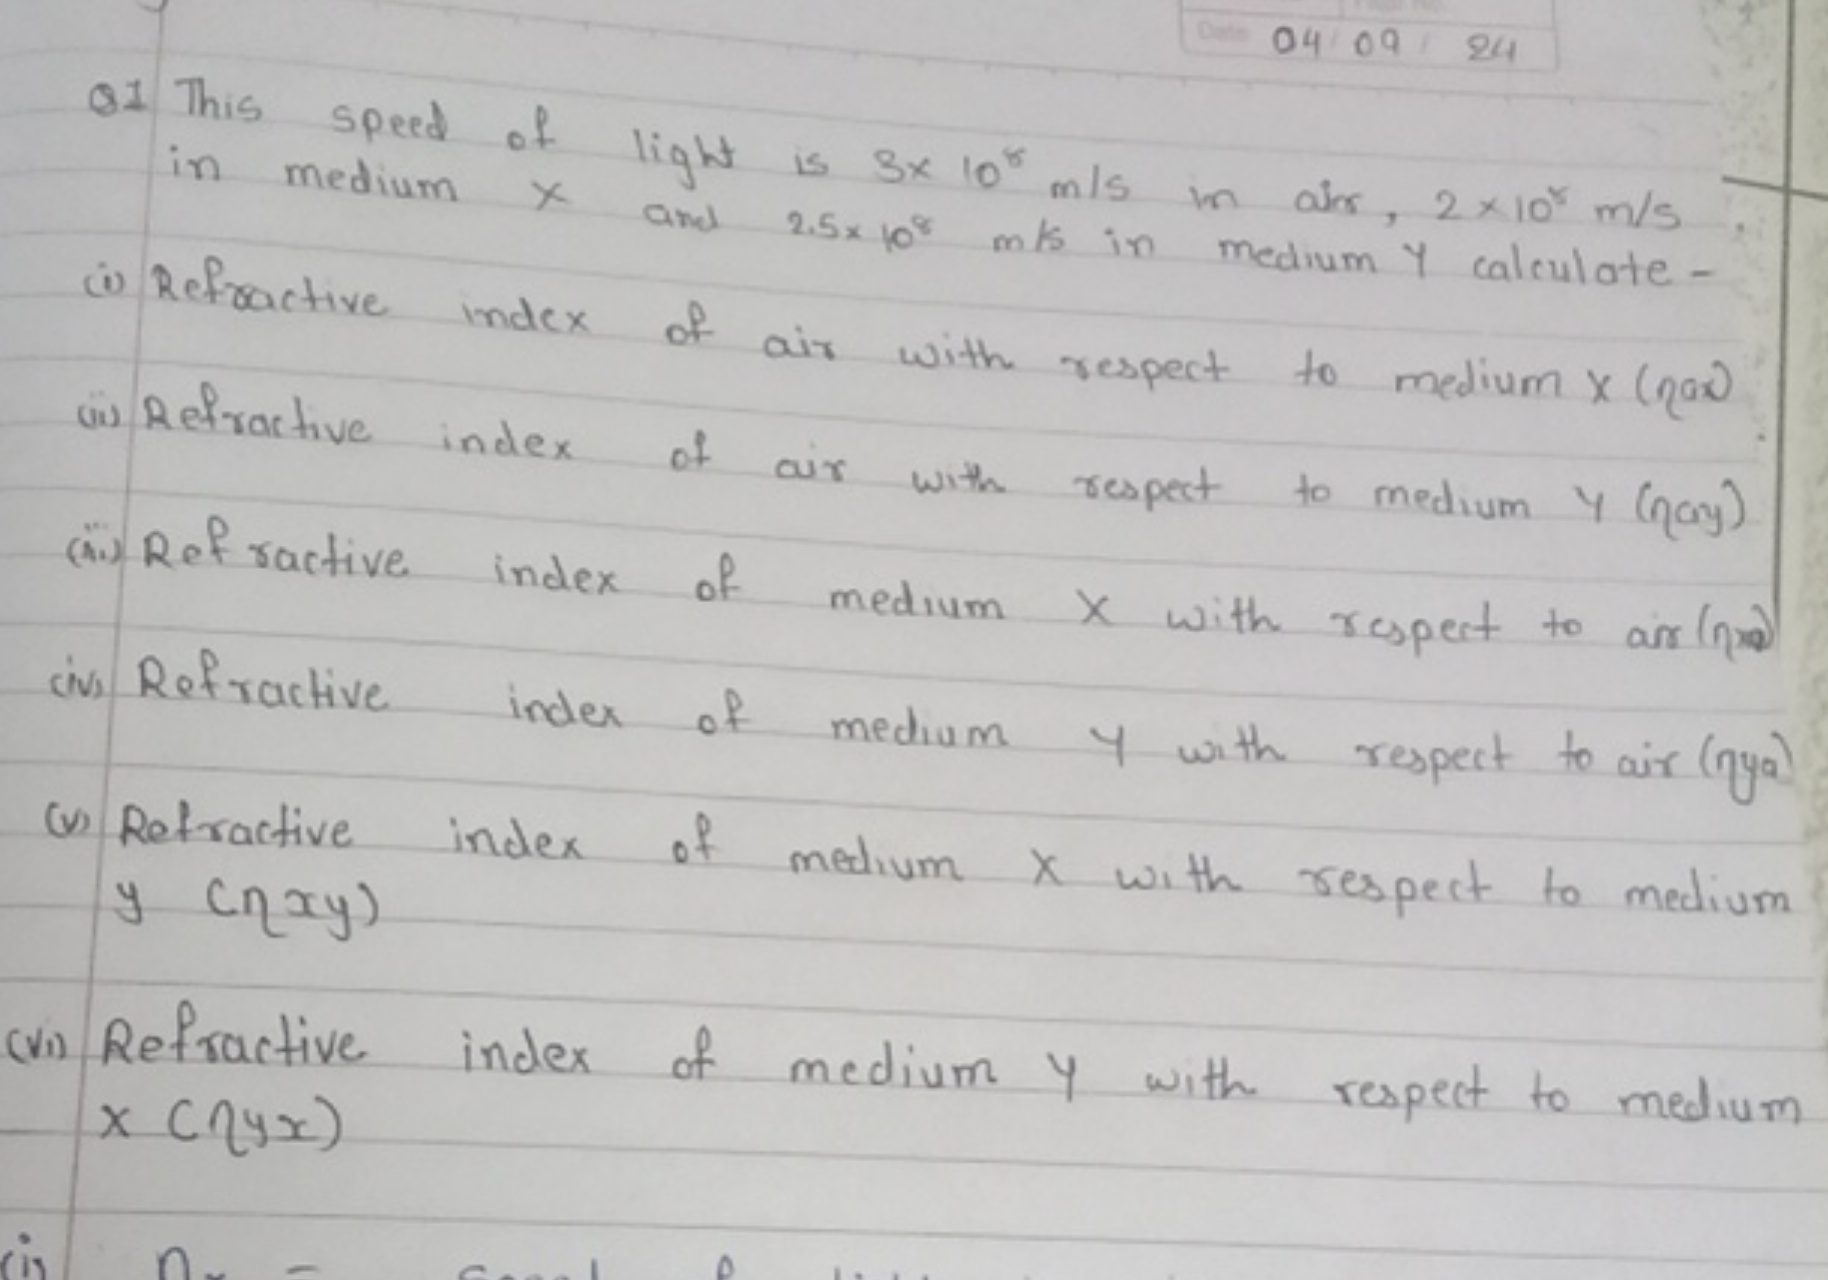 Date 04 09 24
Q1 This speed of light is 3x 10⁸ m/s in air, 2 x 10⁸ m/s
in medium X and 2.5x 10⁸ m/s in medium Y calculate -
(i) Refractive index of air with respect to medium X (ηax)
(ii) Refractive index of air with respect to medium Y (ηay)
(iii) Refractive index of medium X with respect to air (ηxa)
(iv) Refractive index of medium Y with respect to air (ηya)
(v) Refractive index of medium X with respect to medium
y (ηxy)
(vi) Refractive index of medium Y with respect to medium
x (ηyx)
(i)